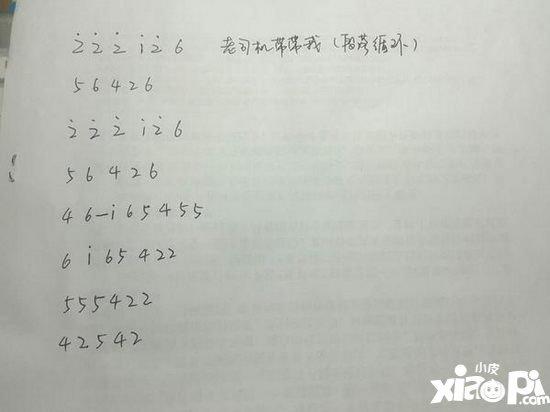 2̇ 2̇ 2̇ i 2̇ 6 老司机带带我(段落循环)
5 6 4 2 6
2̇ 2̇ 2̇ i 2̇ 6
5 6 4 2 6
4 6 — i 6 5 4 5 5
6 i 6 5 4 2 2
5 5 5 4 2 2
4 2 5 4 2
小皮
xiaopi.com